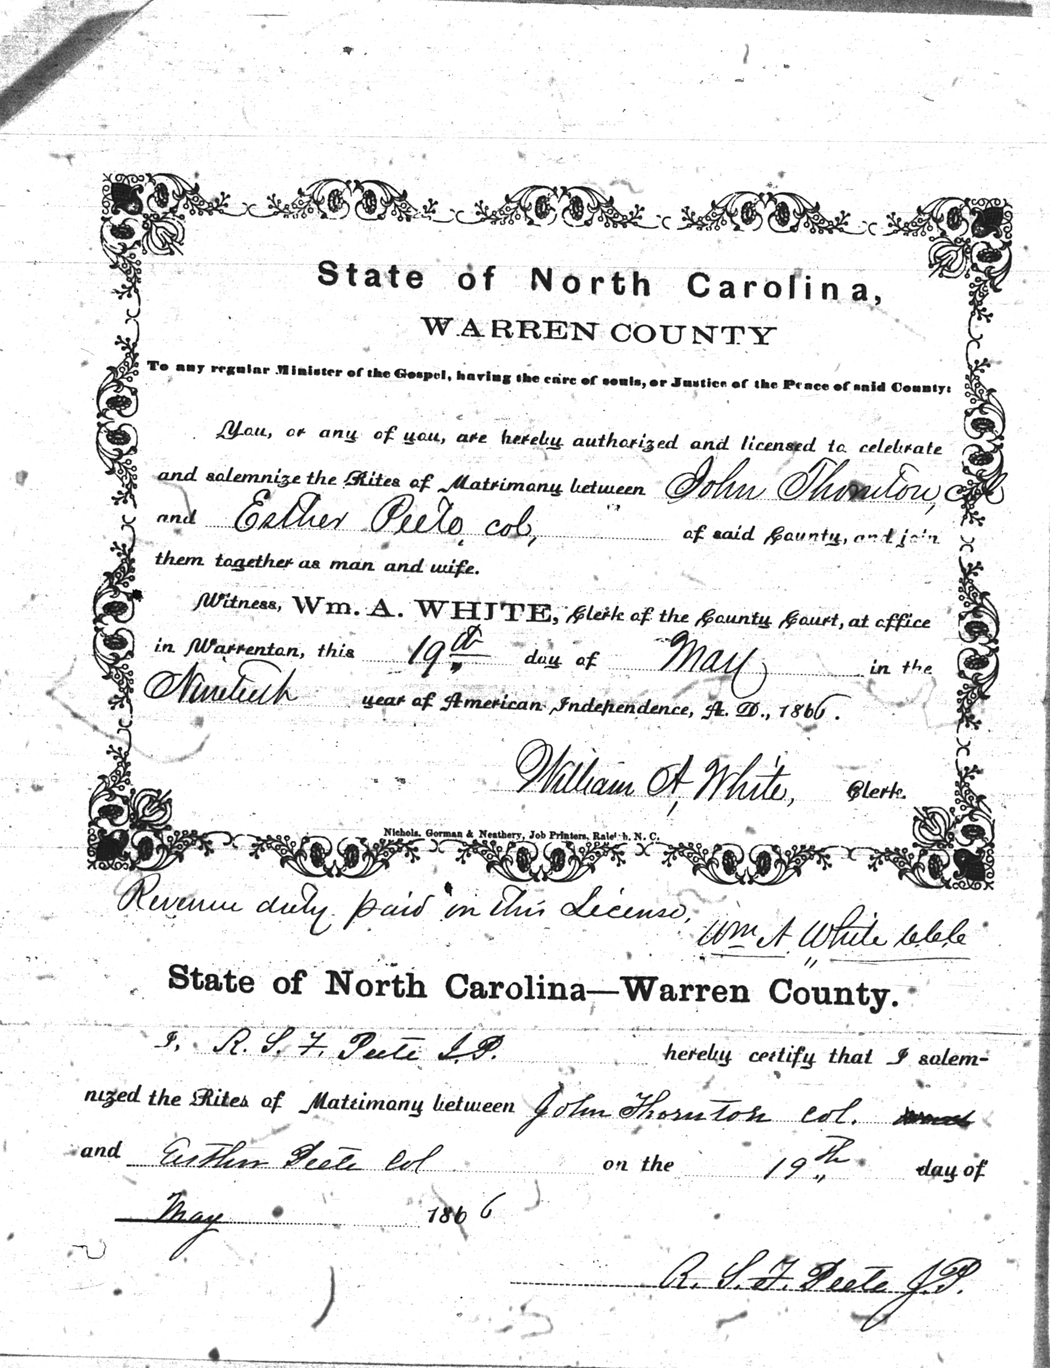 State of North Carolina,
WARREN COUNTY
To any regular Minister of the Gospel, having the care of souls, or Justice of the Peace of said County:
You, or any of you, are hereby authorized and licensed to celebrate
and solemnize the Rites of Matrimony between John Thornton, col
and Esther Peete, col, of said County, and join
them together as man and wife.
Witness, Wm. A. WHITE, Clerk of the County Court, at office
in Warrenton, this 19th day of May in the
Ninetieth year of American Independence, A. D., 1866.
William A, White, Clerk.
Nichols, Gorman & Neathery, Job Printers, Raleigh, N. C.
Revenue duty paid on this License,
Wm A White
State of North Carolina—Warren County.
I, R. S. F. Peete J.P. hereby certify that I solem-
nized the Rites of Matrimony between John Thornton col.
and Esther Peete Col on the 19th day of
May 1866
R. S. F. Peete J.P.